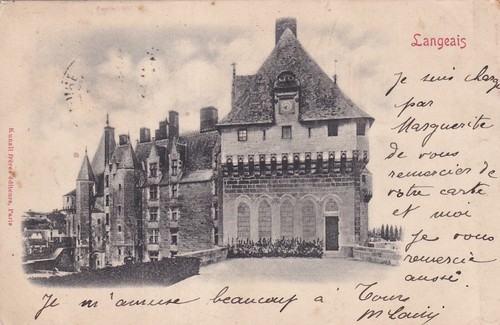 Langeais
Je suis chargé
par
Marguerite
de vous
remercier de
votre carte
et moi
je vous
remercie
aussi.
Je m'amuse beaucoup à Tours
Kunzli frères éditeurs, Paris